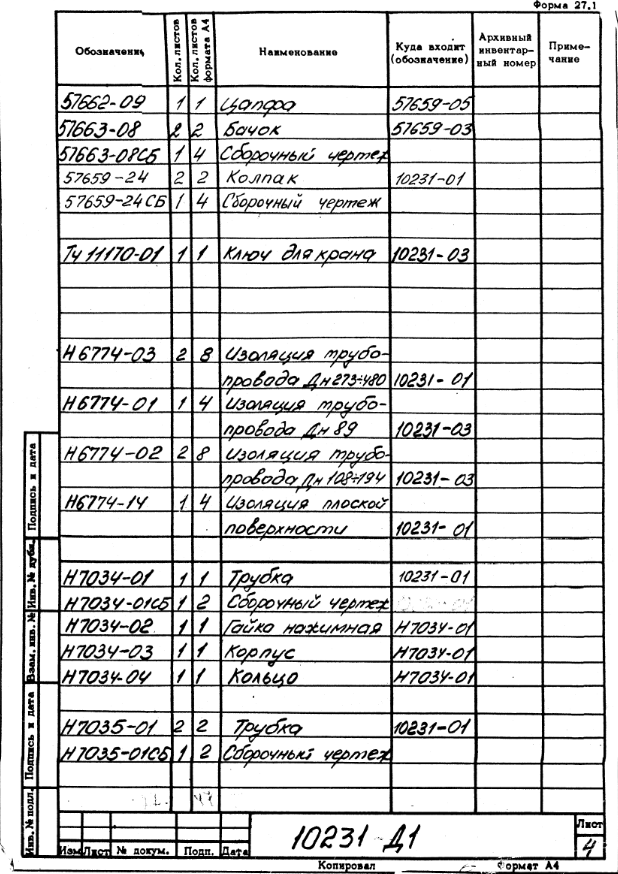 Форма 27.1
Обозначение Кол. листов Кол. листов формата А4 Наименование Куда входит (обозначение) Архивный инвентарный номер Примечание
57662-09 1 1 Цапфа 57659-05
57663-08 2 2 Бачок 57659-03
57663-08СБ 1 4 Сборочный чертеж
57659-24 2 2 Колпак 10231-01
57659-24СБ 1 4 Сборочный чертеж
ТЧ 11170-01 1 1 Ключ для крана 10231-03
Н6774-03 2 8 Изоляция трубо-
провода Дн 273÷480 10231-01
Н6774-01 1 4 Изоляция трубо-
провода Дн 89 10231-03
Н6774-02 2 8 Изоляция трубо-
провода Дн 108÷194 10231-03
Н6774-14 1 4 Изоляция плоской
поверхности 10231-01
Н7034-01 1 1 Трубка 10231-01
Н7034-01СБ 1 2 Сборочный чертеж
Н7034-02 1 1 Гайка нажимная Н7034-01
Н7034-03 1 1 Корпус Н7034-01
Н7034-04 1 1 Кольцо Н7034-01
Н7035-01 2 2 Трубка 10231-01
Н7035-01СБ 1 2 Сборочный чертеж
Подпись и дата
Инв. № дубл.
Взам. инв. №
Подпись и дата
Инв. № подл.
10231 Д1
Лист
4
Изм Лист № докум. Подп. Дата
Копировал Формат А4